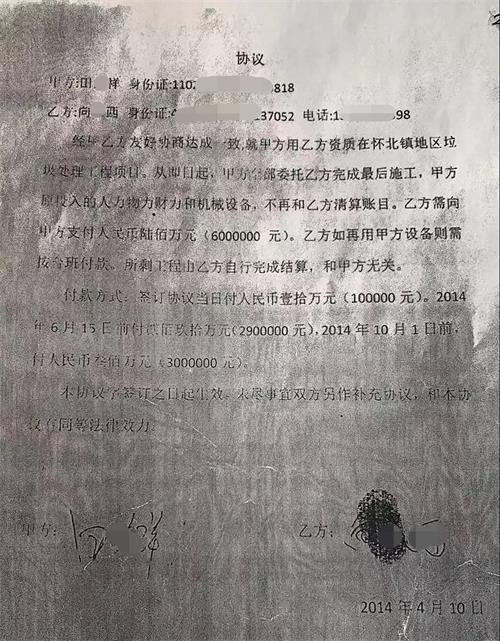 协议
甲方:田 祥 身份证:1102 818
乙方:向 西 身份证:4 237052 电话:1 98
经甲乙方友好协商达成一致,就甲方用乙方资质在怀北镇地区垃
圾处理工程项目。从即日起,甲方全部委托乙方完成最后施工,甲方
原投入的人力物力财力和机械设备,不再和乙方清算账目。乙方需向
甲方支付人民币陆佰万元(6000000 元)。乙方如再用甲方设备则需
按台班付款。所剩工程由乙方自行完成结算,和甲方无关。
付款方式:签订协议当日付人民币壹拾万元(100000 元)。2014
年 6 月 15 日前付贰佰玖拾万元(2900000 元),2014 年 10 月 1 日前,
付人民币叁佰万元(3000000 元)。
本协议字签订之日起生效。未尽事宜双方另作补充协议,和本协
议合同等法律效力。
甲方: 祥 乙方:
2014 年 4 月 10 日